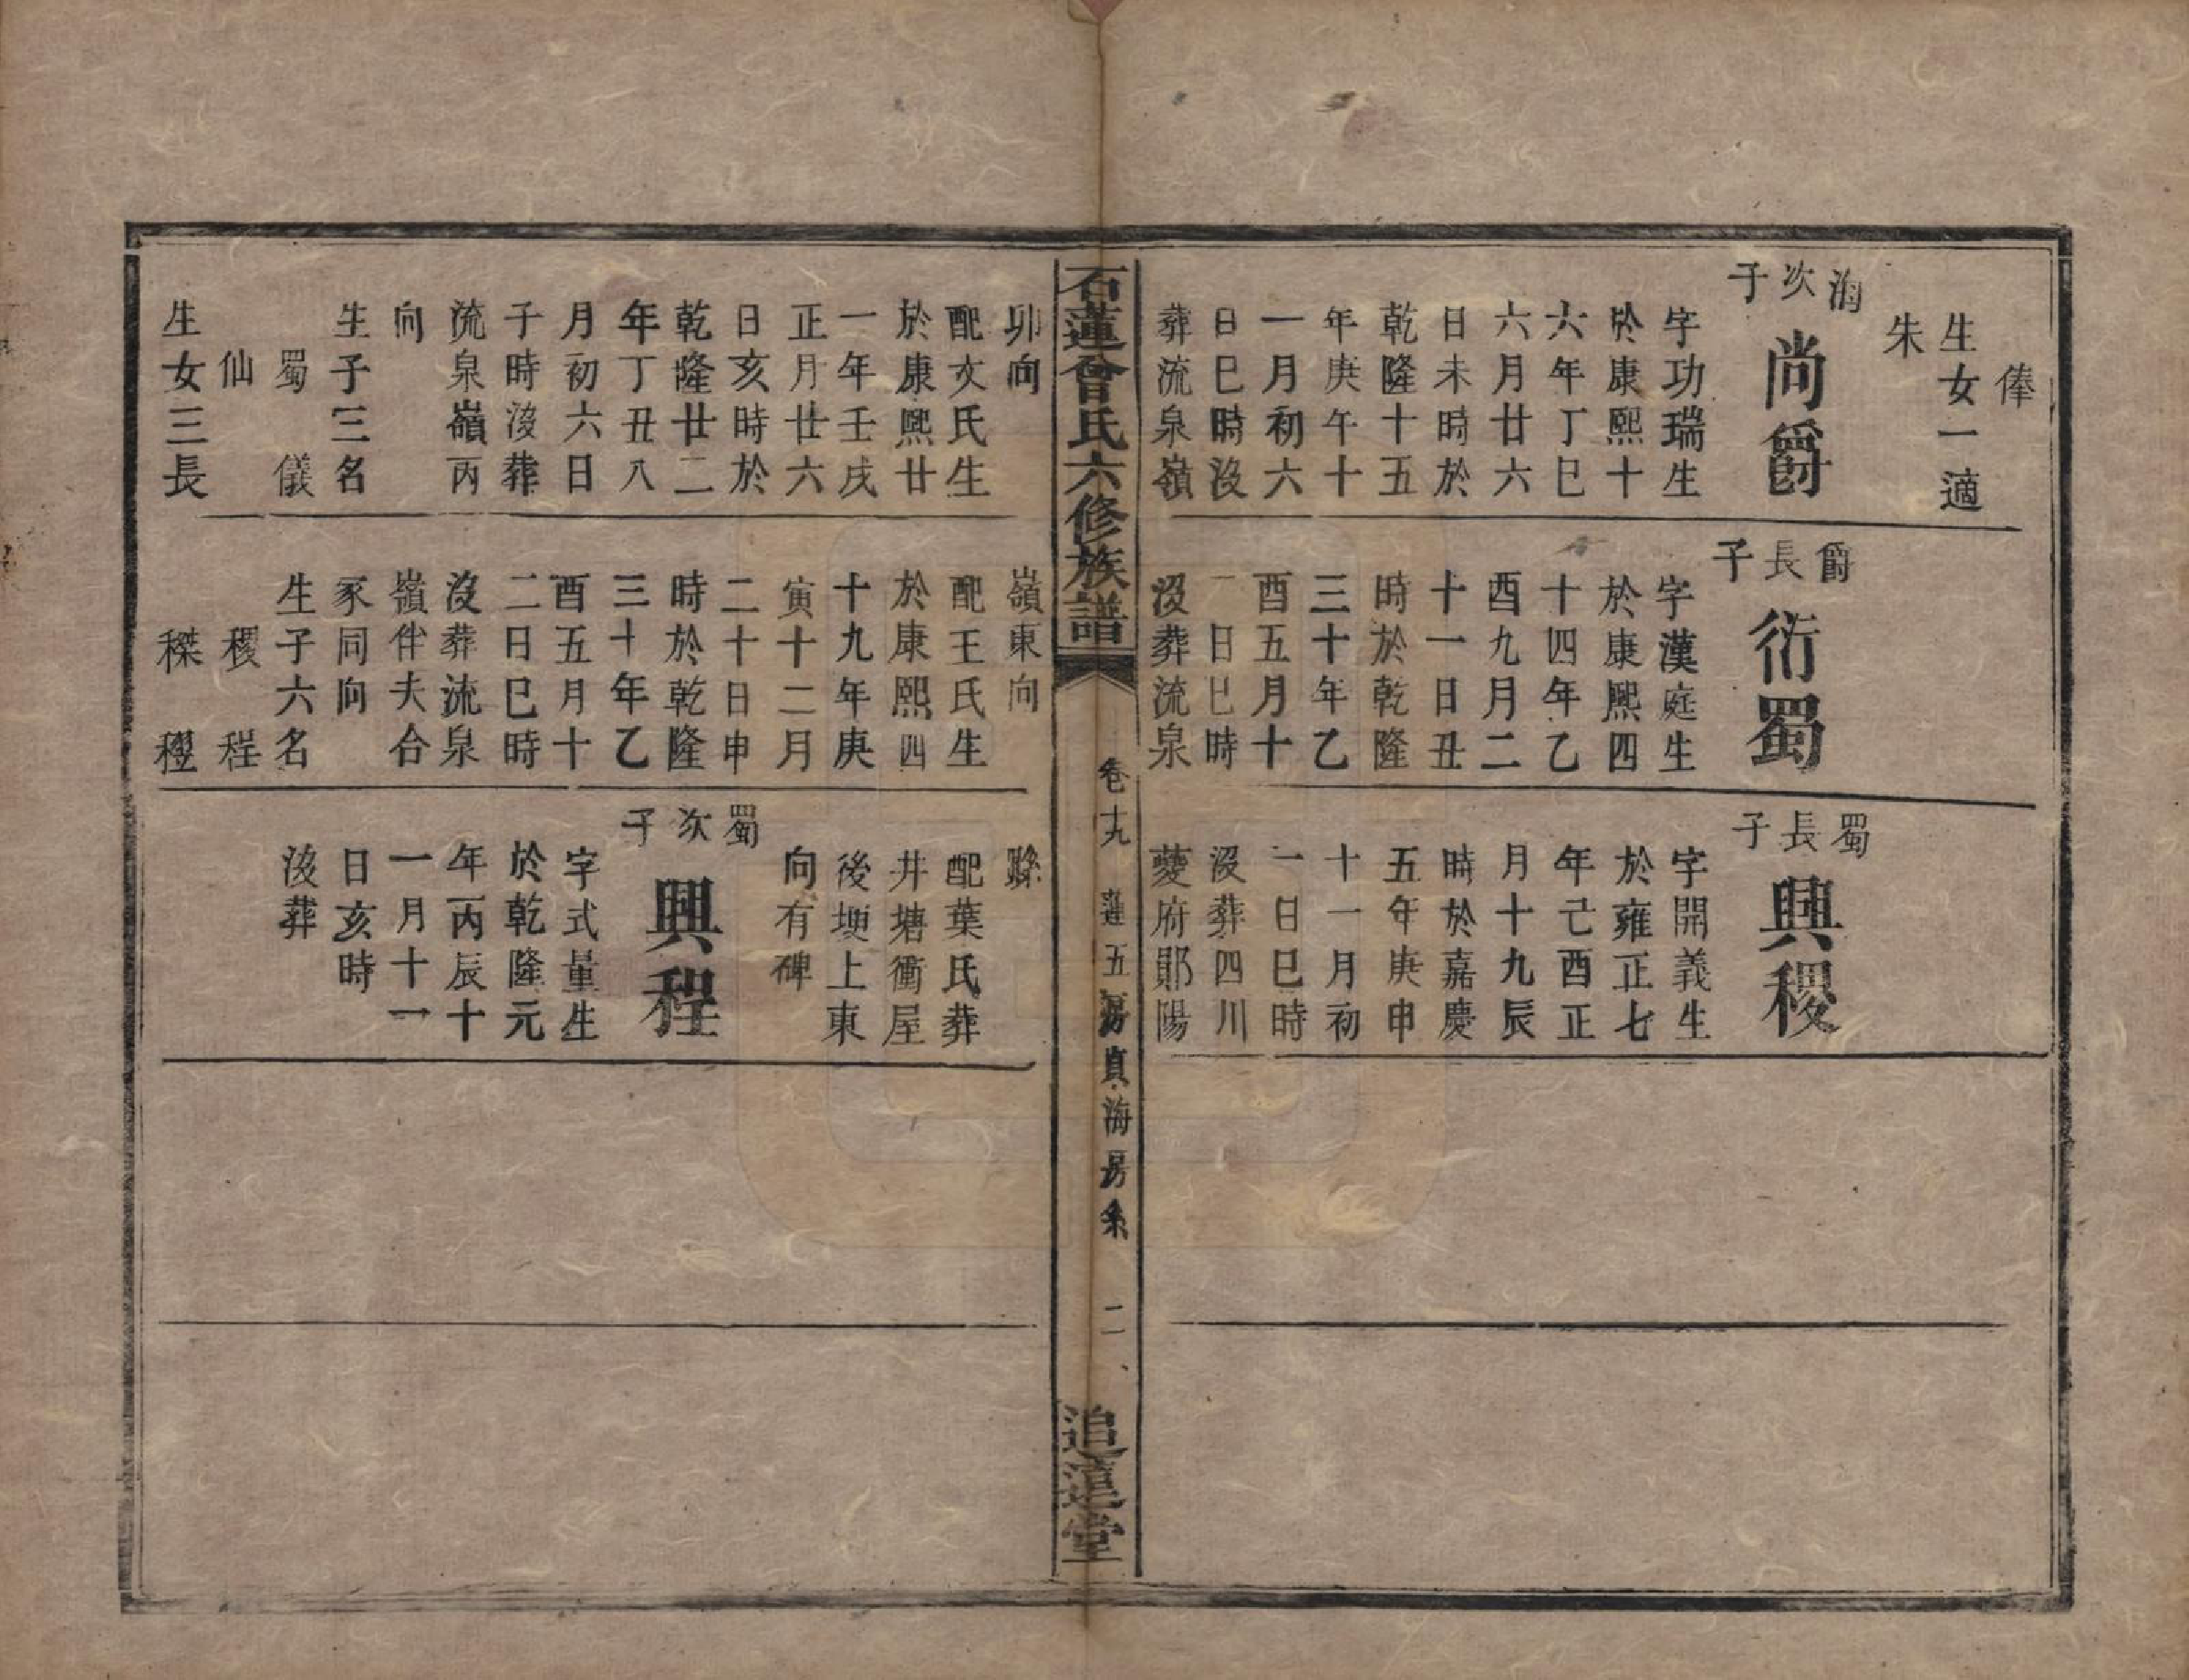 俸
生女一適
朱
海次子
尚爵
字功瑞生
於康熙十
六年丁巳
六月廿六
日未時於
乾隆十五
年庚午十
一月初六
日巳時沒
葬流泉嶺
爵長子
衍蜀
字漢庭生
於康熙四
十四年乙
酉九月二
十一日丑
時於乾隆
三十年乙
酉五月十
一日巳時
沒葬流泉
蜀長子
興稷
字開義生
於雍正七
年己酉正
月十九辰
時於嘉慶
五年庚申
十一月初
一日巳時
沒葬四川
夔府鄖陽
石蓮曾氏六修族譜
卷十九
蓮五房真海房系
二
追遠堂
卯向
配文氏生
於康熙廿
一年壬戌
正月廿六
日亥時於
乾隆廿二
年丁丑八
月初六日
子時沒葬
流泉嶺丙
向
生子三名
蜀 儀
仙
生女三長
嶺東向
配王氏生
於康熙四
十九年庚
寅十二月
二十日申
時於乾隆
三十年乙
酉五月十
二日巳時
沒葬流泉
嶺伴夫合
冢同向
生子六名
稷 程
穄 稷
縣
配葉氏葬
井塘衝屋
後塽上東
向有碑
蜀次子
興程
字式量生
於乾隆元
年丙辰十
一月十一
日亥時
沒葬